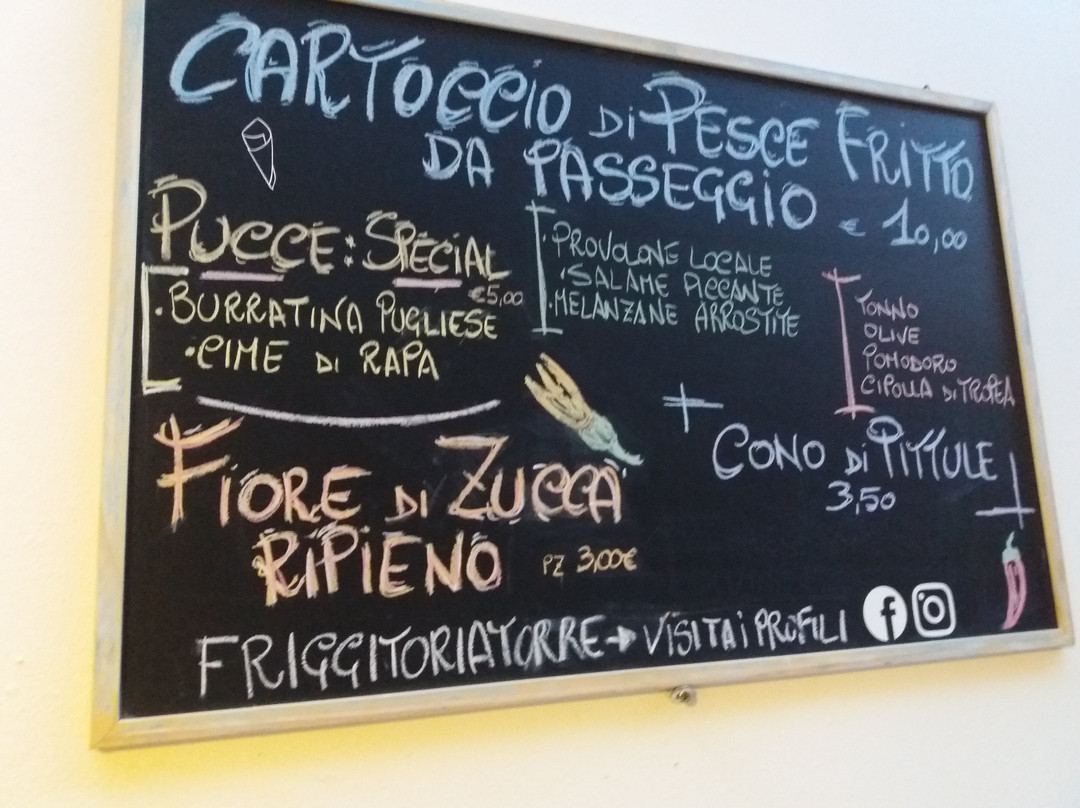 CARTOCCIO DI PESCE FRITTO
DA PASSEGGIO € 10,00
PUCCE: SPECIAL
€5,00
· BURRATINA PUGLIESE
· CIME DI RAPA
· PROVOLONE LOCALE
· SALAME PICCANTE
· MELANZANE ARROSTITE
TONNO
OLIVE
POMODORO
CIPOLLA DI TROPEA
FIORE DI ZUCCA
RIPIENO PZ 3,00€
CONO DI PITTULE
3,50
FRIGGITORIATORRE → VISITA i PROFILI